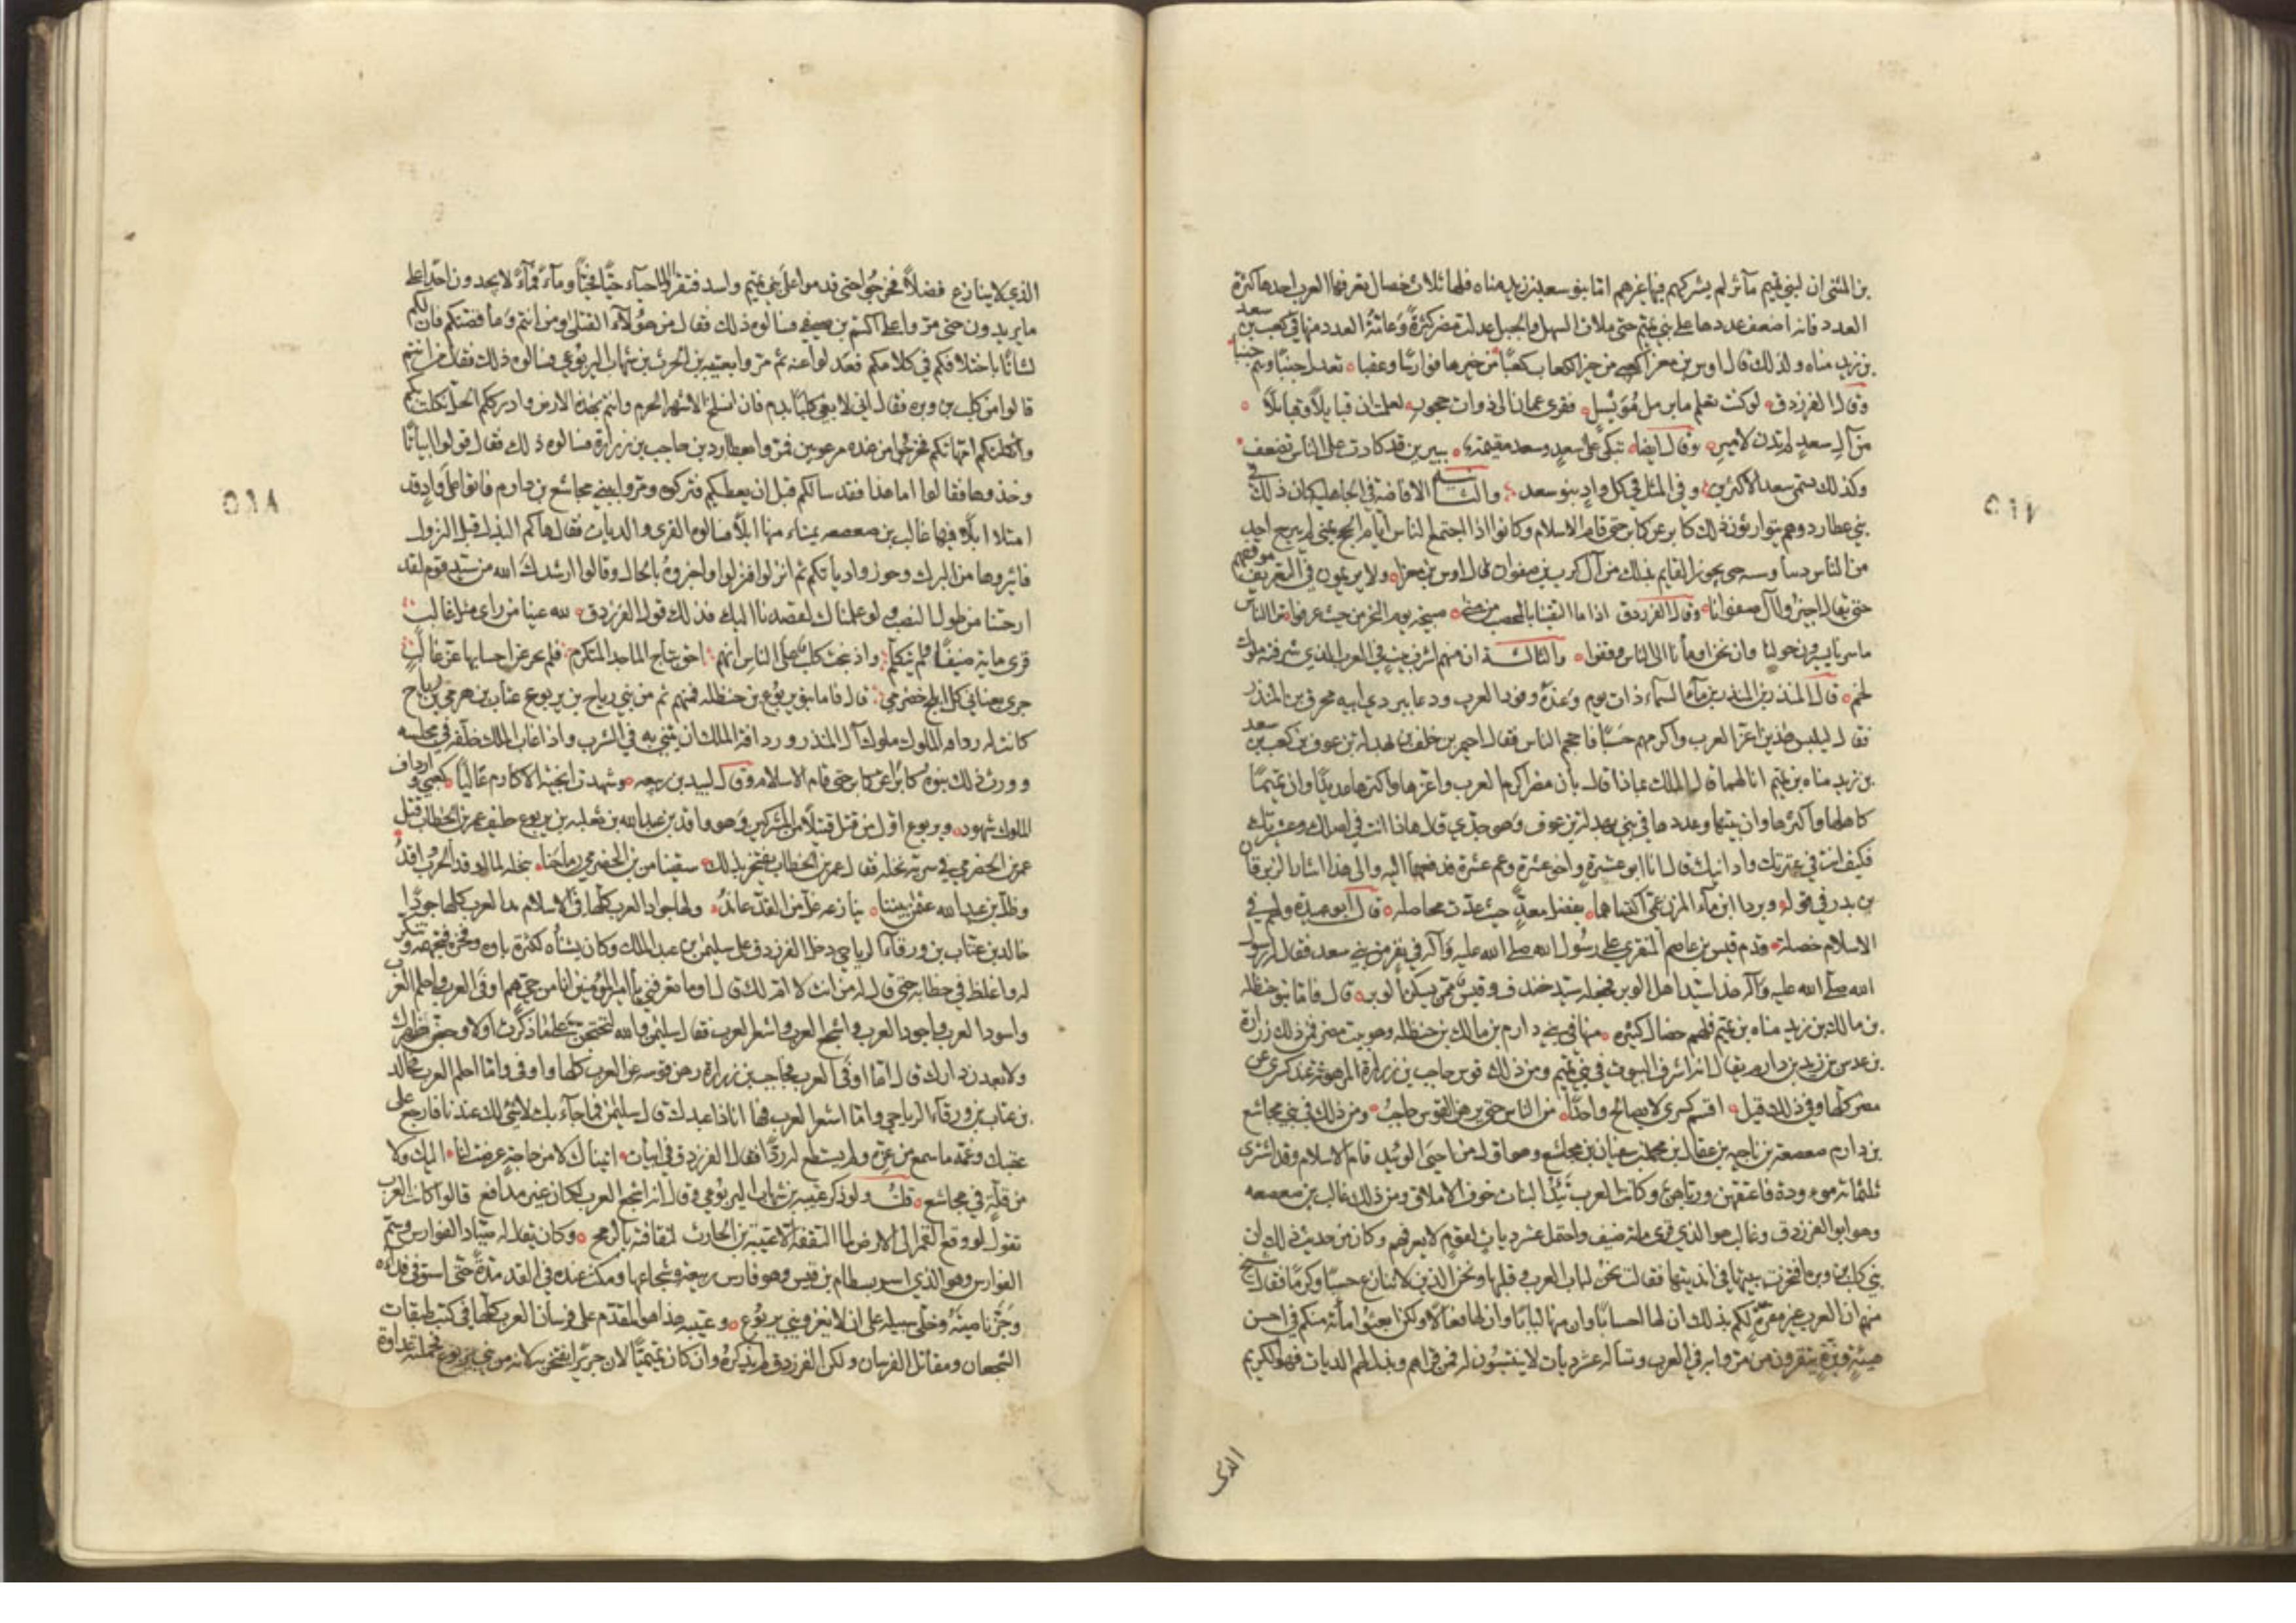 بن المثنى ان لبني تميم مآثر لم يشركهم فيها غيرهم اما بنو سعد بن زيد مناه فلها ثلاث خصال تعرفها العرب احدها كثرة
العدد فانه اضعف عددها على بني تميم حتى ملات السهل والجبل عدلت مضر كثرة وعامة العدد منها في كعب بن سعد
بن زيد مناه ولذلك قال اوس بن مغرا كعبي من خير الكعاب كعبا من خيرها فوارسا وعقبا تعدل جنبا وتميم جنبا
وقال الفرزدق لو كنت تعلم ما برمل مُوَيْسِل فقرى عمان الى ذوات حجور لعلمت ان قبايلا وقبايلا
من آل سعد لم تدن لامير وقال ايضا تبكي على سعد وسعد مقيمة بيبرين قد كادت على الناس تضعف
وكذلك تسمى سعد الاكثرين وفي المثل في كل واد بنو سعد والثانية الافاضة في الجاهلية كان ذلك في
بني عطارد وهم يتوارثون ذلك كابر عن كابر حتى قام الاسلام وكانوا اذا اجتمع الناس ايام الحج بمنى لم يبرح احد
من الناس دينا وسنة حتى يجوز القايم بذلك من آل كرب بن صفوان قال اوس بن مغرا ولا يريمون في التعريف موقفهم
حتى يقال اجيزوا آل صفوانا وقال الفرزدق اذا ما التقينا بالمحصب من منى صبيحة يوم النحر من حيث عرفوا ترى الناس
ما سرنا يسيرون حولنا وان نحن اومأنا الى الناس وقفوا والثالثة ان منهم اشرف بيت في العرب الذي شرفته ملوك
لخم قال المنذر بن المنذر بن مآء السمآء ذات يوم وعنده وفود العرب ودعا ببردي ابيه محرق بن المنذر
فقال ليلبس هذين اعز العرب واكرمهم حسبا فاحجم الناس فقال احيمر بن خلف بن بهدلة بن عوف بن كعب بن سعد
بن زيد مناه بن تميم انا لهما قال الملك بماذا قال بان مضر اكرم العرب واعزها واكثرها عديدا وان تميما
كاهلها واكثرها وان بيتها وعددها في بني بهدلة بن عوف وهو جدي قال هذا انت في اصلك وعشيرتك
فكيف انت في عترتك وادانيك قال انا ابو عشرة واخو عشرة وعم عشرة فدفعهما اليه والى هذا اشار الزبرقان
بن بدر في قوله وبردا ابن مآء المزن عمي اكتساهما بفضل معد حيث عدت محاصله قال ابو عبيدة ولهم في
الاسلام خصلة قدم قيس بن عاصم المنقري على رسول الله صلى الله عليه وآله في نفر من بني سعد فقال له رسول
الله صلى الله عليه وآله هذا سيد اهل الوبر فجعله سيد خندف وقيس ممن يسكن الوبر قال فاما بنو حنظلة
بن مالك بن زيد مناه بن تميم فلهم خصال كثيرة منها في بني دارم بن مالك بن حنظلة وهو بيت مضر فمن ذلك زرارة
بن عدس بن زيد بن دارم يقال انه اشرف البيوت في بني تميم ومن ذلك قوس حاجب بن زرارة المرهونة عند كسرى عن
مضر كلها وفي ذلك قيل اقسم كسرى لا يصالح واحدا من الناس حتى يرهن القوس حاجب ومن ذلك في بني مجاشع
بن دارم صعصعة بن ناجيه بن عقال بن محمد بن سفيان بن مجاشع وهو اول من احيى الوئيد قام الاسلام وقد اشترى
ثلثمائة موءودة فاعتقهن ورباهن وكانت العرب تئد البنات خوف الاملاق ومن ذلك غالب بن صعصعه
وهو ابو الفرزدق وغالب هو الذي قرى مائة ضيف واحتمل عشر ديات لقوم لا يعرفهم وكان من حديث ذلك ان
بني كلب بن وبره افتخرت بينها في انديتها فقالت نحن لباب العرب وقلبها ونحن الذين لا ننازع حسبا وكرما فقال شيخ
منهم ان العرب غير مقرة لكم بذلك ان لها احسابا وان منها لبابا وان لها فعالا ولكن ابعثوا مأئة منكم في احسن
هيئة وبزة ينفرون من مروا به في العرب وتسأله عشر ديات لا ينتسبون له فمن قراهم وبذل لهم الديات فهو الكريم
الذى
الذي لا ينازع فضلا فخرجوا حتى قدموا على بني تميم واسد فنفروا الاحيآء حيا فحيا ومآء فمآء لا يجدون احدا على
ما يريدون حتى مروا على اكثم بن صيفي فسالوه ذلك فقال من هؤلآء القتلى ومن انتم وما قصتكم فان لكم
لشانا باختلافكم في كلامكم فعدلوا عنه ثم مروا بعتيبه بن الحرث بن شهاب اليربوعي فسالوه ذلك فقال من انتم
قالوا من كلب بن وبره فقال اني لابغي كلبا بدم فان انسلخ الاشهر الحرم وانتم بهذه الارض وادرككم الخيل نكلت بكم
واثكلتكم امهاتكم فخرجوا من عنده مرعوبين فمروا بعطارد بن حاجب بن زرارة فسالوه ذلك فقال قولوا بيانا
وخذوها فقالوا اما هذا فقد سالكم قبل ان يعطيكم فتركوه ومروا ببني مجاشع بن دارم فاتوا على واد قد
امتلا ابلا فيها غالب بن صعصعه يهناء منها ابلا فسالوه القرى والديات فقال هاكم البذل قبل النزول
فابتزوها من البرك وحوزوا دياتكم ثم انزلوا فنزلوا واخبروه بالحال وقالوا ارشدك الله من سيد قوم لقد
ارحتنا من طول النصب ولو علمنا لقصدنا اليك فذلك قول الفرزدق لله عينا من راى مثل غالب
قرى ماية ضيفا ولم يتكلم واذ نحبت كلب على الناس انهم احق بتاج الماجد المتكرم فلم يجل عن احسابها غير غالب
جرى بعناني كل ابلج خضرمي قال فاما بنو يربوع بن حنظله فمنهم ثم من بني رياح بن يربوع عتاب بن هرمي بن رياح
كانت له ردافه الملوك ملوك آل المنذر وردافة الملك ان يثنى به في الشرب واذا غاب الملك خلفه في مجلسه
وورث ذلك بنوه كابرا عن كابر حتى قام الاسلام وقال لبيد بن ربيعه وشهدت انجية الاكارم غاليا كعبي وارداف
الملوك شهود ويربوع اول من قتل قتيلا من المشركين وهو واقد بن عبد الله بن ثعلبه بن يربوع حليف عمر بن الخطاب قتل
عمرو بن الحضرمي في سرية نخله فقال عمر بن الخطاب يفتخر بذلك سقينا من بن الحضرمي رماحنا بنخله لما اوقد الحرب واقد
وظل بن عبد الله عثمن بيننا ينازعه غل من القد عاند ولها جواد العرب كلها في الاسلام بدا العرب كلها جودا
خالد بن عتاب بن ورقآء الرياحي دخل الفرزدق على سليمن بن عبد الملك وكان يشنأه لكثرة باوه وفخره فتجهمه وتنكر
له واغلظ في خطابه حتى قال له من انت لا ام لك قال اوما تعرفني يا امير المؤمنين انا من حي هم اوفى العرب واحلم العرب
واسود العرب واجود العرب واشجع العرب واشعر العرب فقال سليمن والله لتحتجن لما ذكرت اولا وجعن ظهرك
ولابعدن دارك قال اما اوفى العرب فحاجب بن زرارة رهن قوسه عن العرب كلها واوفى واما احلم العرب فخالد
بن عتاب بن ورقآء الرياحي واما اشعر العرب فها انا ذا عبدك قال سليمن فما جآء بك لا شئ لك عندنا فارجع على
عقبك وغمه ما سمع من عزه ولم يستطع له ردا فقال الفرزدق في ابيات اتيناك لا من حاجة عرضت لنا اليك ولا
من قلة في مجاشع قلت ولو ذكر عتيبه بن شهاب اليربوعي وقال انه اشجع العرب لكان غير مدافع قالوا كانت العرب
تقول لو وقع القمر الى الارض لما التقفه الا عتيبه بن الحارث لثقافته بالرمح وكان يقال له صياد الفوارس وسم
الفوارس وهو الذي اسر بسطام بن قيس وهو فارس ربيعه وشجاعها ومكث عنده في القد مدة حتى استوفى فداءه
وجز ناصيته وخلى سبيله على ان لا يغزو بني يربوع وعتيبه هذا هو المقدم على فرسان العرب كلها في كتب طبقات
الشجعان ومقاتل الفرسان ولكن الفرزدق لم يذكره وان كان تميميا لان جريرا يفتخر به لانه من بني يربوع فحملته عداوة